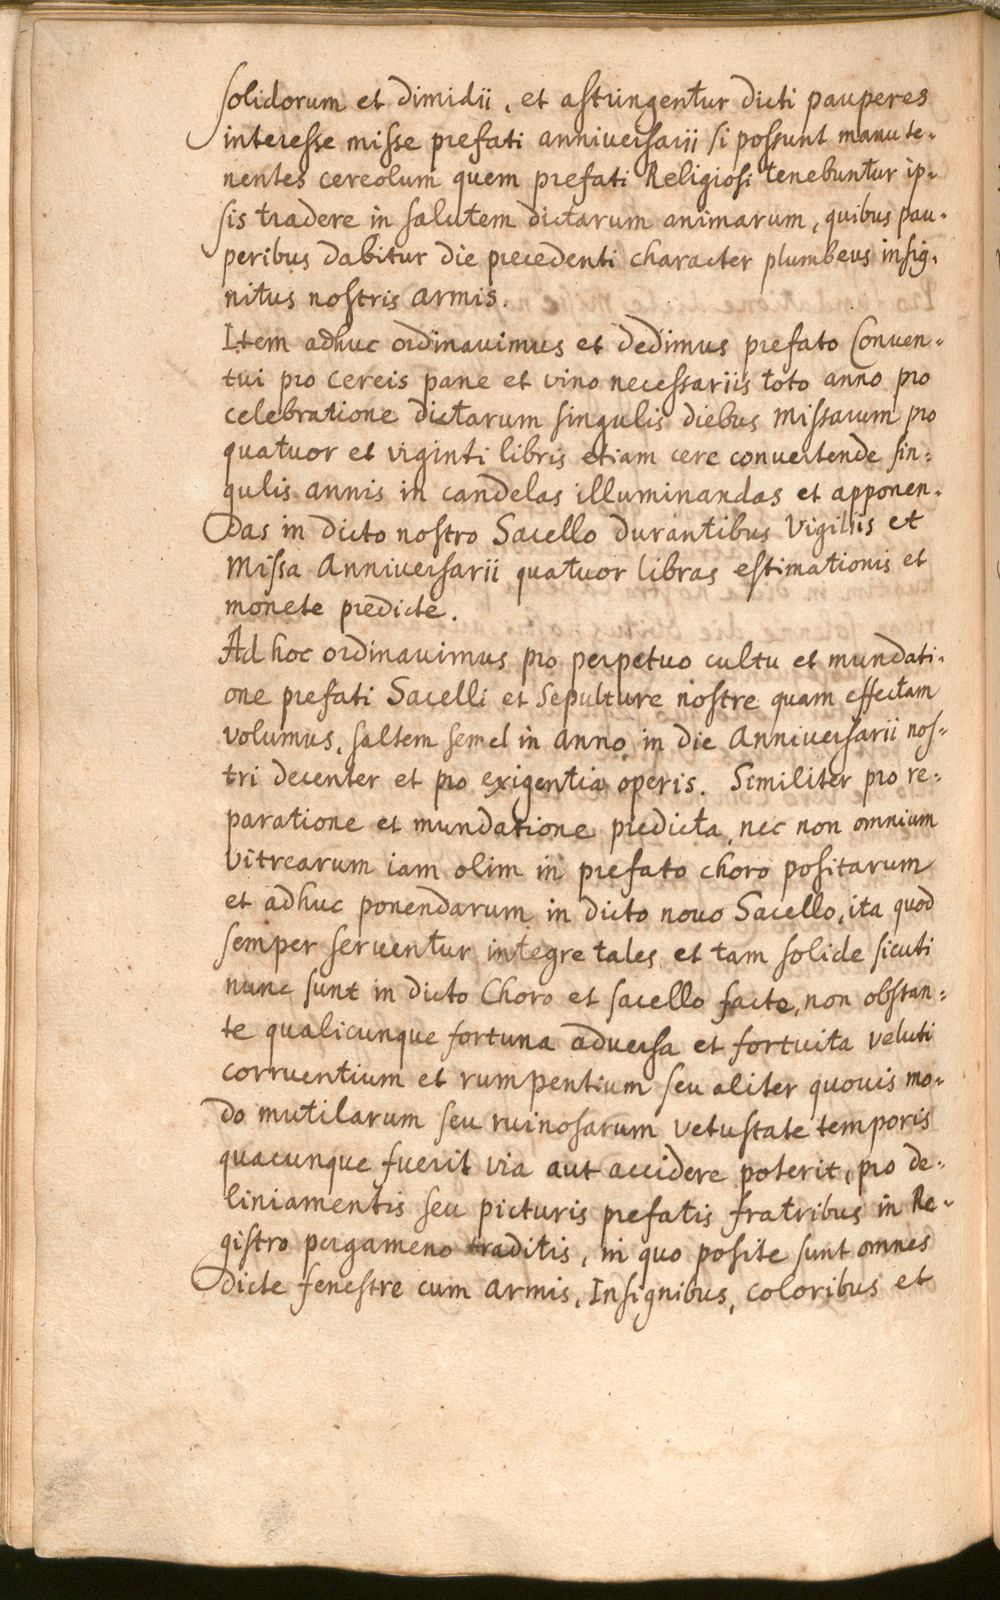 solidorum et dimidii, et astringentur dicti pauperes
interesse misse prefati anniversarii si possunt manute-
nentes cereolum quem prefati Religiosi tenebuntur ip-
sis tradere in salutem dictarum animarum, quibus pau-
peribus dabitur die precedenti character plumbeus insig-
nitus nostris armis.
Item adhuc ordinavimus et dedimus prefato Conven-
tui pro cereis pane et vino necessariis toto anno pro
celebratione dictarum singulis diebus missarum pro
quatuor et viginti libris etiam cere convertende sin-
gulis annis in candelas illuminandas et apponen-
das in dicto nostro Sacello durantibus Vigiliis et
Missa Anniversarii quatuor libras estimationis et
monete predicte.
Ad hoc ordinavimus pro perpetuo cultu et mundati-
one prefati Sacelli et Sepulture nostre quam effectam
volumus, saltem semel in anno in die Anniversarii nos-
tri decenter et pro exigentia operis. Similiter pro re-
paratione et mundatione predicta, nec non omnium
vitrearum iam olim in prefato choro positarum
et adhuc ponendarum in dicto novo Sacello, ita quod
semper serventur integre tales et tam solide sicuti
nunc sunt in dicto Choro et sacello facto, non obstan-
te qualicunque fortuna adversa et fortuita veluti
corruentium et rumpentium seu aliter quovis mo-
do mutilarum seu ruinosarum vetustate temporis
quacunque fuerit via aut accidere poterit, pro de-
liniamentis seu picturis prefatis fratribus in Re-
gistro pergameno traditis, in quo posite sunt omnes
dicte fenestre cum armis, Insignibus, coloribus et